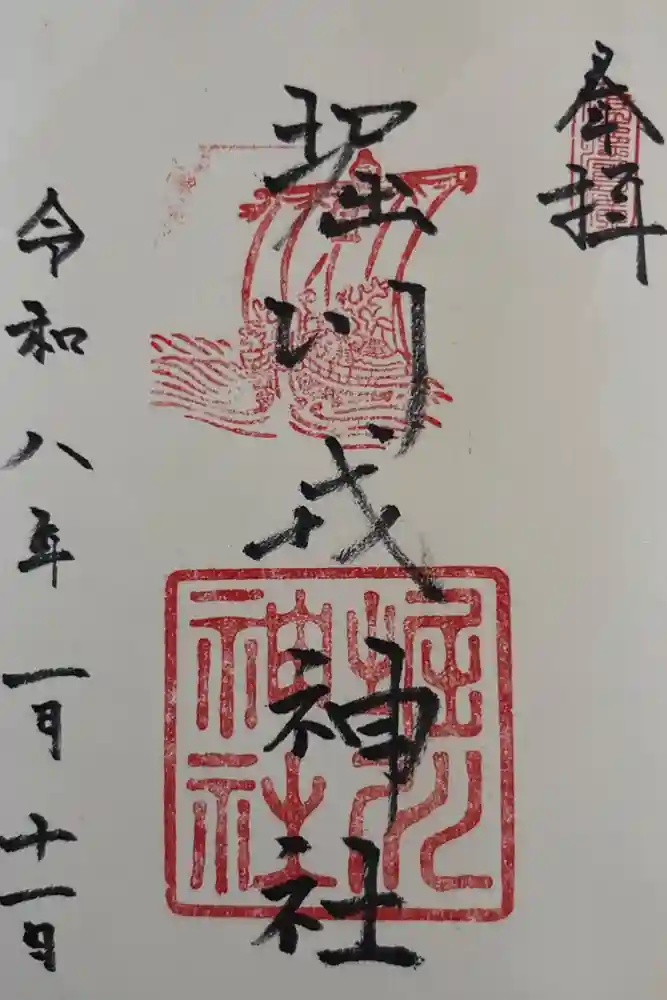 奉拝
堀川戎神社
令和八年一月十一日
堀川
神社